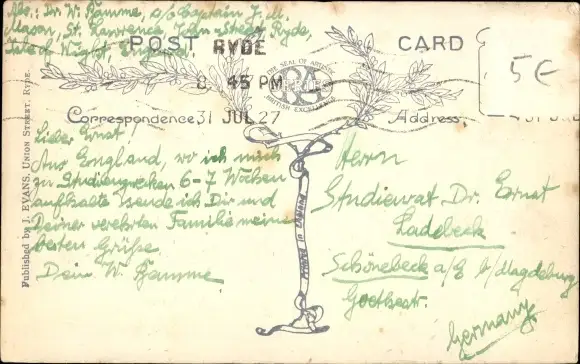 Abs: Dr. W. Bamme, c/o Captain J. M.
Mason, St. Lawrence, Street, Ryde,
Isle of Wight,
POST CARD
RYDE
8. 45 PM
31 JUL 27
THE SEAL OF ARTISTIC
BRITISH EXCELLENCE
5€
Correspondence
Address
Published by J. EVANS, UNION STREET, RYDE.
Printed in England
Lieber Ernst!
Aus England, wo ich mich
zu Studienzwecken 6-7 Wochen
aufhalte sende ich Dir und
Deiner verehrten Familie meine
besten Grüsse
Dein W. Bamme
Herrn
Studienrat Dr. Ernst
Ladebeck
Schönebeck a/E b/Magdeburg
Goethestr.
Germany